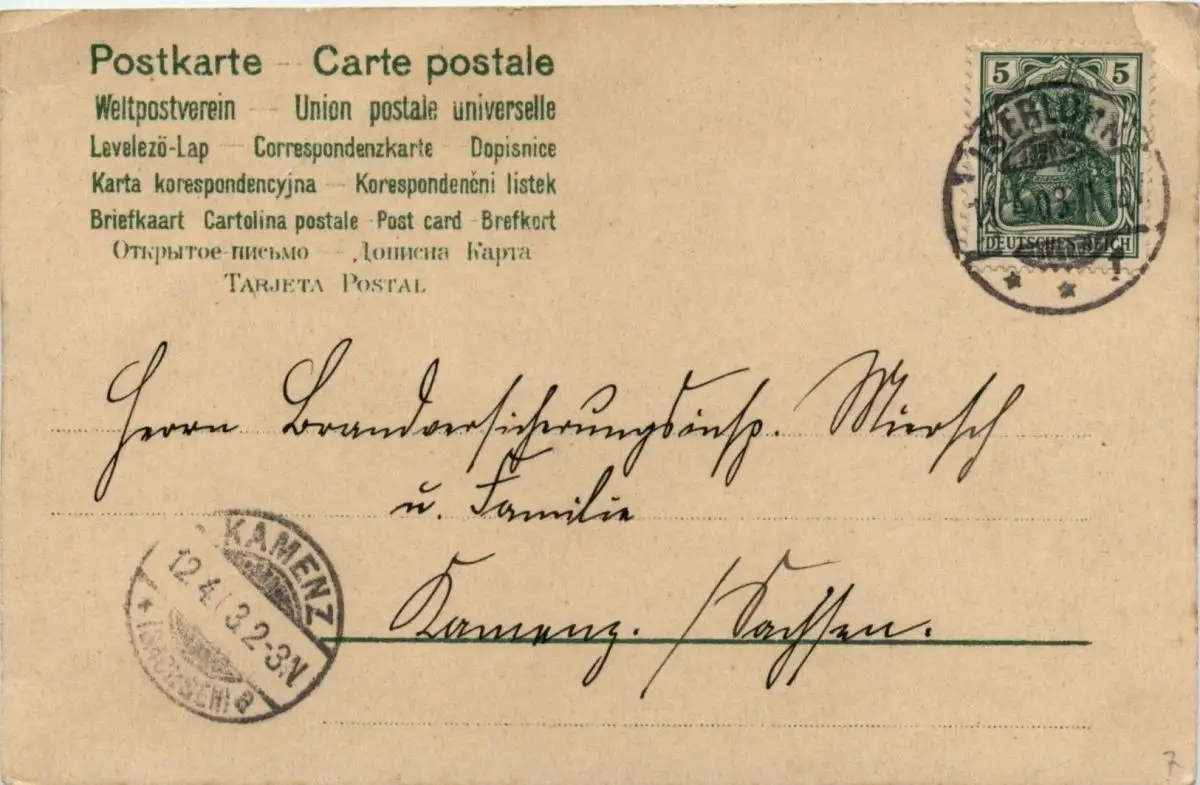 Postkarte — Carte postale
Weltpostverein — Union postale universelle
Levelezö-Lap — Correspondenzkarte Dopisnice
Karta korespondencyjna — Korespondenčni listek
Briefkaart Cartolina postale - Post card - Brefkort
Открытое-письмо — Дописна Карта
TARJETA POSTAL
5 5
DEUTSCHES REICH
Herrn Brandversicherungsinsp. Miersch
u. Familie
Kamenz. /Sachsen.
KAMENZ
12.4.03.2-3N
* (SACHSEN) a
7